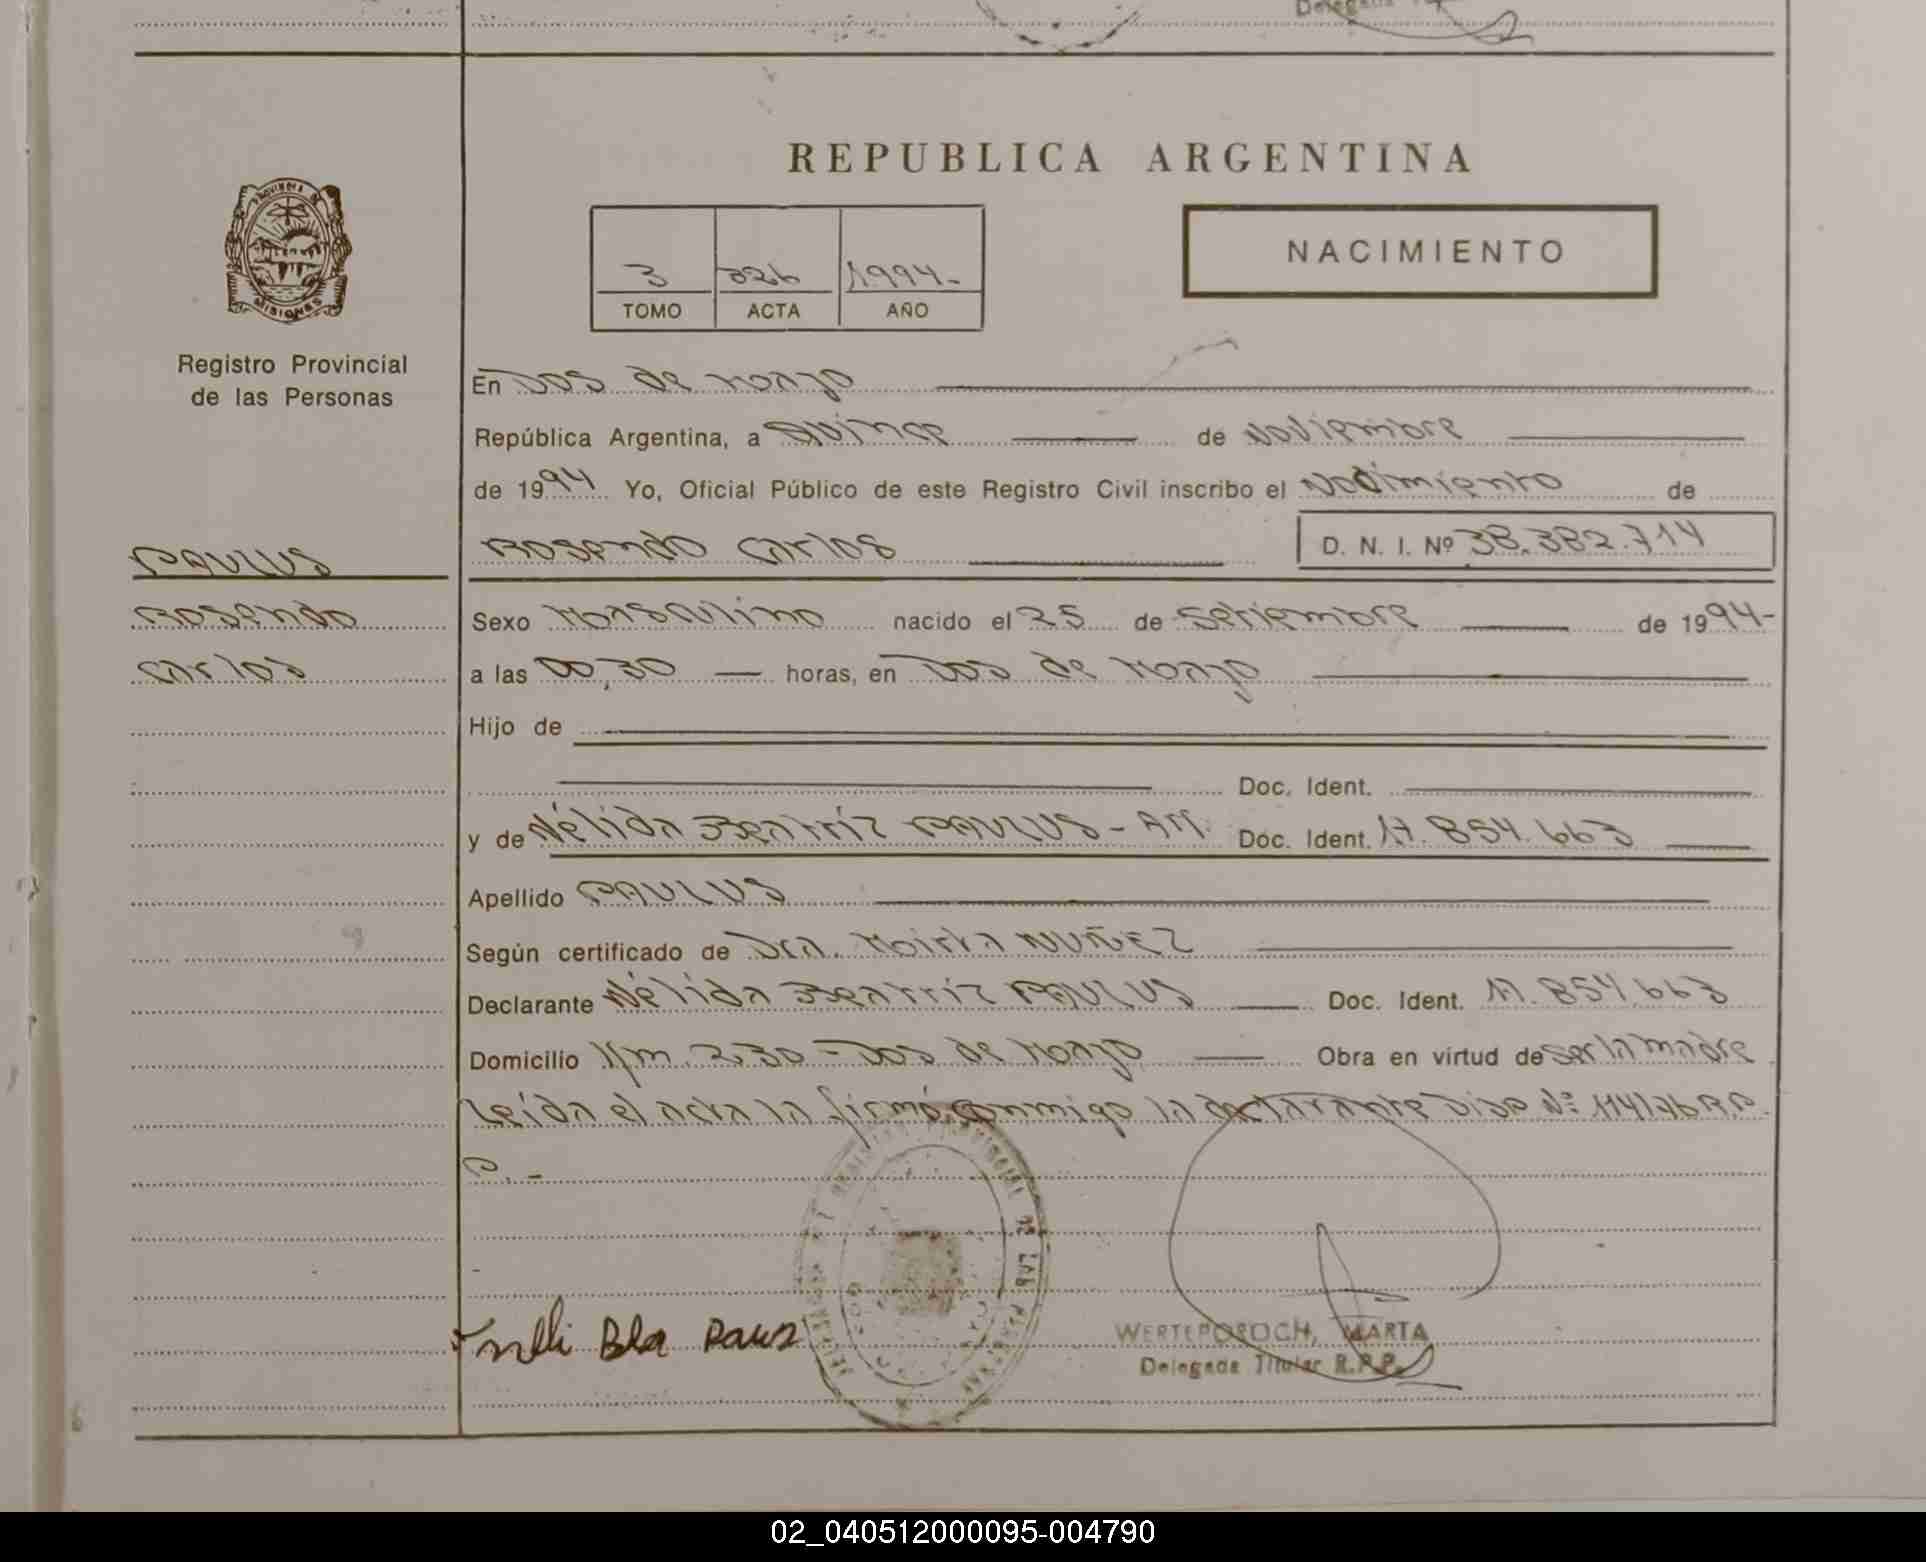 Delegada
REPUBLICA ARGENTINA
PROVINCIA DE
MISIONES
NACIMIENTO
3 326 1994-
TOMO ACTA AÑO
Registro Provincial
de las Personas
En Dos de Mayo
República Argentina, a Quince de Noviembre
de 1994 Yo, Oficial Público de este Registro Civil inscribo el Nacimiento de
PAULUS
Rosendo Carlos D. N. I. Nº 38.382.714
Rosendo
Sexo Masculino nacido el 25 de Setiembre de 1994-
Carlos
a las 00,30 horas, en Dos de Mayo
Hijo de
Doc. Ident.
y de Nélida Beatríz PAULUS - Doc. Ident. 17.854.663
Apellido PAULUS
Según certificado de Dra. Mirta NUÑEZ
Declarante Nélida Beatríz PAULUS Doc. Ident. 17.854.663
Domicilio Km. 230 - Dos de Mayo Obra en virtud de ser la madre
Leída el acta la firmó conmigo la declarante Disp Nº 114/76 R.P.
P. -
WERTEPOROCH, MARTA
Delegada Titular R.P.P.
02_040512000095-004790